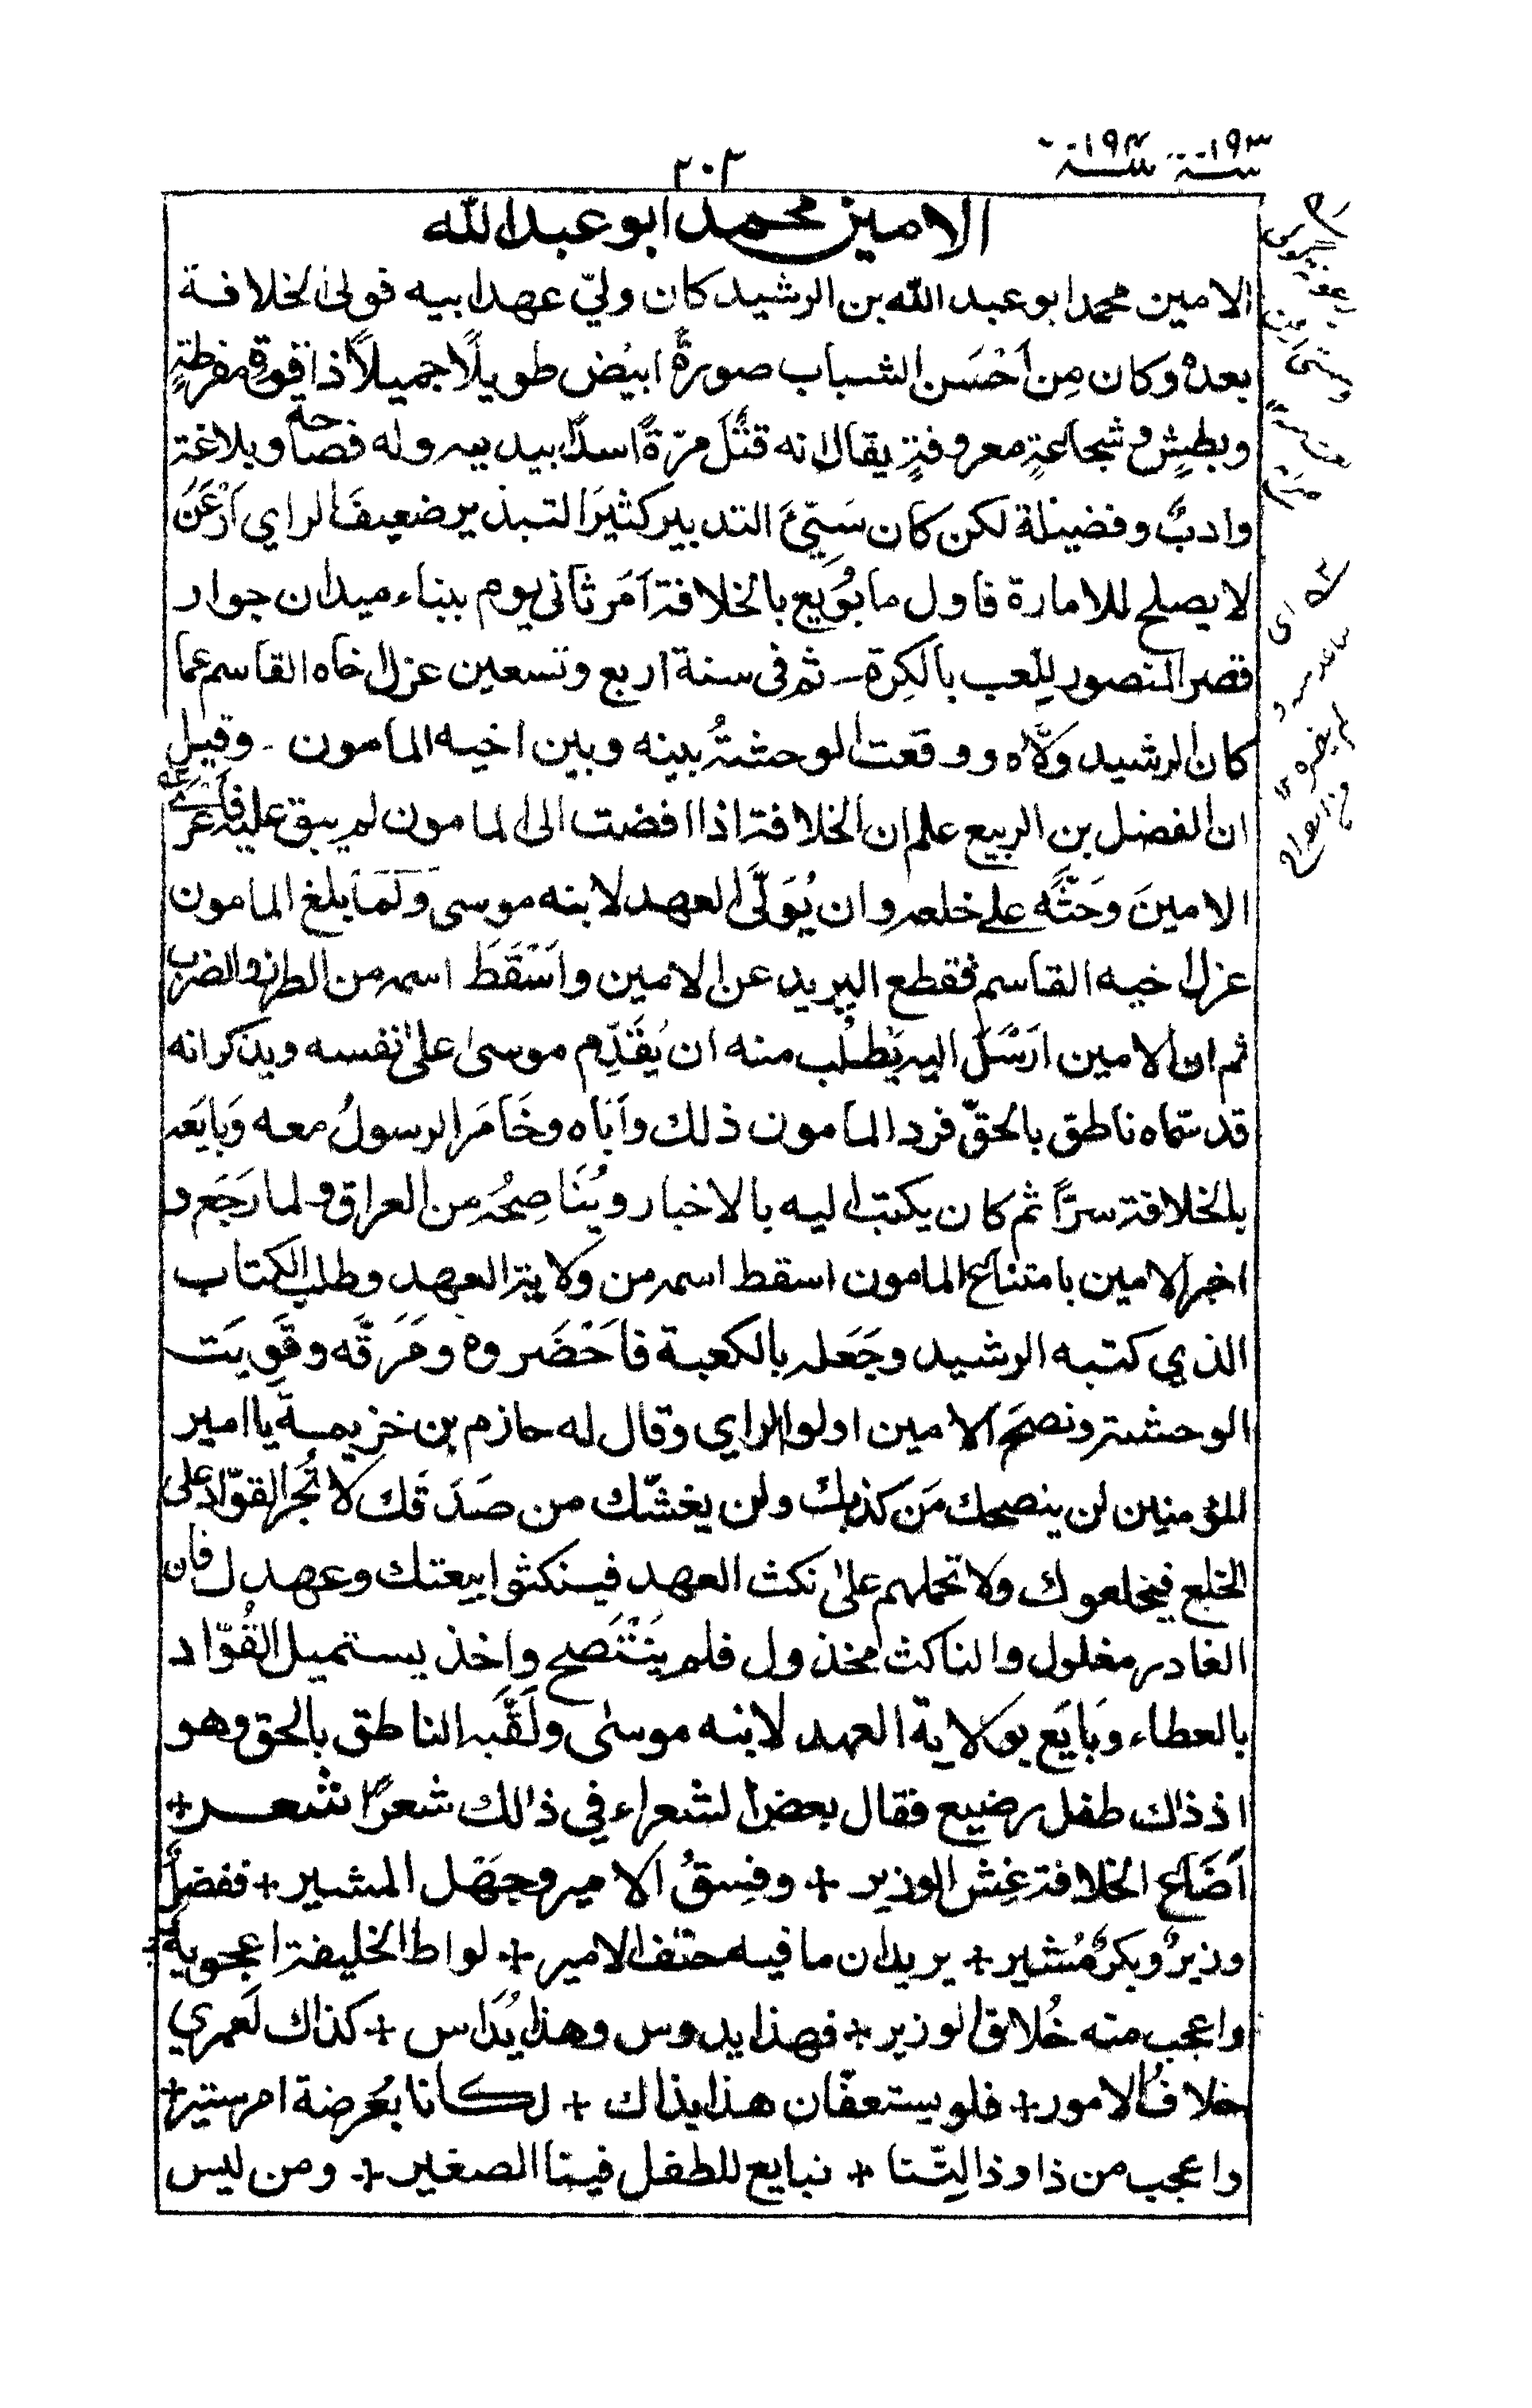 سنة ١٩٣ سنة ١٩٤
٢٠٣
الامين محمد ابو عبد الله
الامين محمد ابو عبد الله بن الرشيد كان وليّ عهد ابيه فولى الخلافة
بعده وكان مِن اَحْسَن الشباب صورةً ابيُض طويلًا جميلًا ذا قوة مفرطةٍ
وبطشٍ وشجاعةٍ معروفةٍ يقال انه قتَل مرّةً اسدًا بيديه وله فصاحة وبلاغة
وادبٌ وفضيلة لكن كان سَيِّئَ التدبير كثيرَ التبذير ضعيفَ الراي اَرْعَنَ
لا يصلح للامارة فاول ما بُويع بالخلافة اَمَر ثاني يوم ببناء ميدان جوار
قصر المنصور للعب بالكِرة ـ ثم في سنة اربع وتسعين عزل اخاه القاسم عما
كان الرشيد ولّاه ووقعت الوحشةُ بينه وبين اخيه المامون ـ وقيل
ان الفضل بن الربيع علم ان الخلافة اذا افضت الى المامون لم يبق عليه فاَغرٰى
الامينَ وَحَثَّه على خلعه وان يُوَلَّى العهد لابنه موسى ولمّا بلغ المامون
عزل اخيه القاسم فقطع البريد عن الامين واَسْقَطَ اسمه من الطراز والضرب
ثم ان الامين ارَسَل اليه يَطلُب منه ان يُقَدِّم موسىٰ علىٰ نفسه ويذكر انه
قد سمّاه ناطق بالحقّ فرد المامون ذلك واَبَاه وخَامَر الرسولُ معه وَبايَعه
بالخلافة سرًّا ثم كان يكتب اليه بالاخبار ويُنَاصِحُه مِن العراق ولما رَجَع و
اخبر الامين بامتناع المامون اسقط اسمه من ولاية العهد وطلب الكتاب
الذي كتبه الرشيد وجَعَله بالكعبة فاَحْضَروه ومَزّقَه وقَوِيَت
الوحشة ونصَحَ الامين اولوا الراي وقال له حازم بن خزيمة يا امير
المؤمنين لن ينصحك مَن كذبك ولن يغشّك من صَدَقَك لا تُجرّ القوّاد على
الخلع فيخلعوك ولا تحملهم علىٰ نكث العهد فينكثوا بيعتك وعهدك فان
الغادر مغلول والناكث مخذول فلم يَنْتَصح واخذ يستميل القُوّاد
بالعطاء وبَايَع بولاية العهد لابنه موسىٰ ولَقَّبه الناطق بالحق وهو
اذ ذاك طفل رضيع فقال بعض الشعراء في ذالك شعرًا شعر+
اَضَاع الخلافة غِشُ الوزير + وفِسقُ الامير وجهَل المشير + ففضلٌ
وزيرٌ وبكرٌ مُشير + يريدان ما فيه حتف الامير + لواط الخليفة اعجوبة +
واعجب منه خُلاق الوزير + فهذا يدوس وهذا يُدَاس + كذاك لَعمري
خلافُ الامور + فلو يستعفّان هذا بذاك + لكانا بعُرضة امر ستير +
واعجب من ذا وذا اِنّنا + نبايع للطفل فينا الصغير + ومن ليس